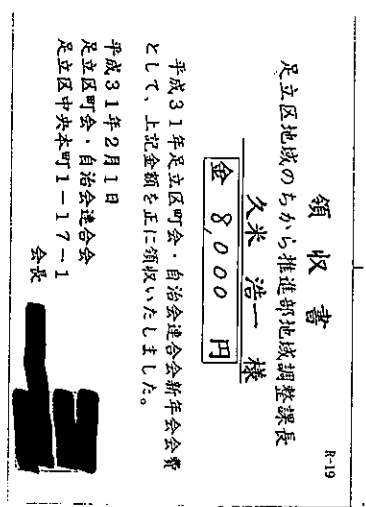 R-19
領収書
足立区地域のちから推進部地域調整課長
久米 浩一 様
金 8,000 円
平成31年足立区町会・自治会連合会新年会会費
として、上記金額を正に領収いたしました。
平成31年2月1日
足立区町会・自治会連合会
足立区中央本町1-17-1
会長